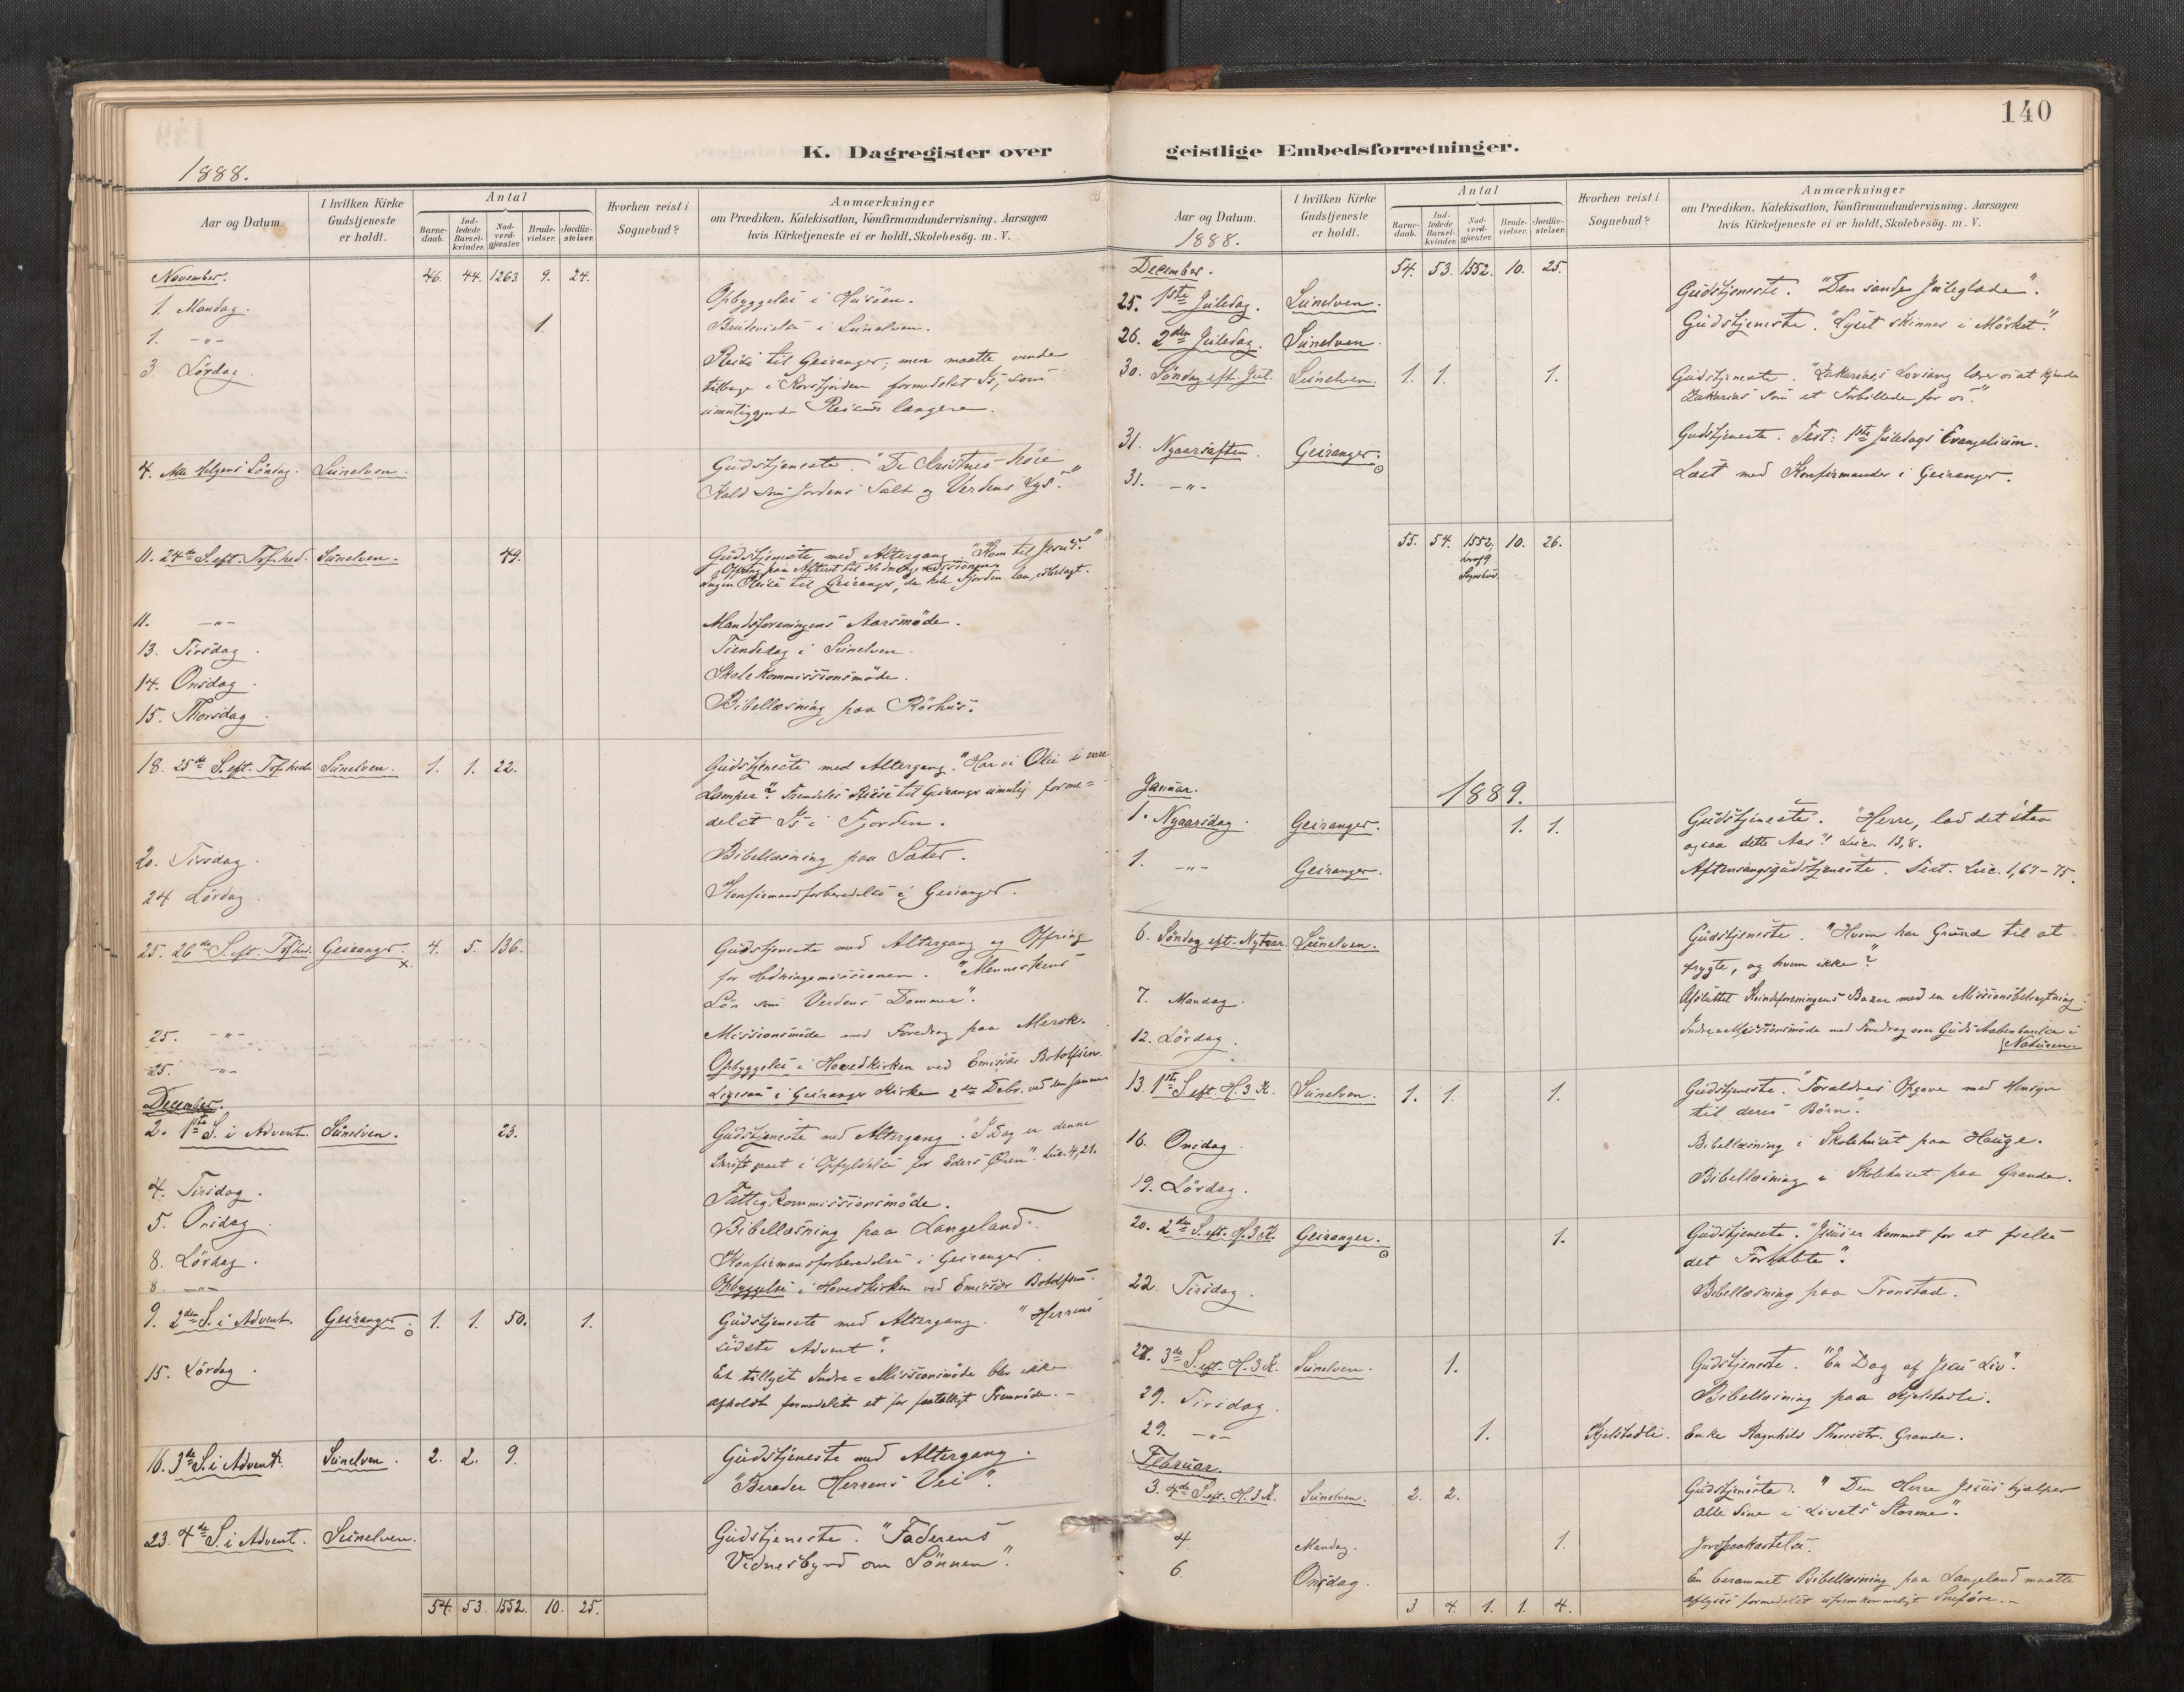 140
K. Dagregister over geistlige Embedsforretninger.
1888.
Aar og Datum.
I hvilken Kirke Gudstjeneste er holdt.
Antal
Barnedaab.
Indledede Barselkvinder.
Nadverdgjæster.
Brudevielser.
Jordfæstelser.
Hvorhen reist i Sognebud?
Anmærkninger
om Prædiken, Katekisation, Konfirmandundervisning, Aarsagen
hvis Kirketjeneste ei er holdt, Skolebesøg. m. V.
November. 46. 44. 1263. 9. 24.
1. Mandag. Opbyggelse i Husöen.
1. -"- 1. Brudevielse i Sunelven.
3. Lördag. Reise til Geiranger; men maatte vende
tilbage i Korsfjorden formedelst Is, som
umuliggjorde Reisen længere.
4. Alle Helgens Söndag. Sunelven. Gudstjeneste. "De Kristnes höie
Kald som Jordens Salt og Verdens Lys."
11. 24de S. eft. Tref.hed. Sunelven. 49. Gudstjeneste med Altergang. "Kom til Jesus."
Ofring paa Alteret til Hedningemissionen
Ingen Reise til Geiranger, da hele Fjorden laa isbelagt.
11. -"- Mandsforeningens Aarsmöde.
13. Tirsdag. Tiendedag i Sunelven.
14. Onsdag. Skolekommissionsmöde.
15. Thorsdag. Bibellæsning paa Röshus.
18. 25de S. eft. Tref.hed. Sunelven. 1. 1. 22. Gudstjeneste med Altergang. "Har vi Olie i vore
Lamper"? Fremdeles Reise til Geiranger umulig forme=
delst Is i Fjorden.
20. Tirsdag. Bibellæsning paa Sæter.
24 Lördag. Konfirmandforberedelse i Geiranger.
25. 26de S. eft. Tref.hed. Geiranger. x. 4. 5. 136. Gudstjeneste med Altergang og Offring
for Hedningemissionen. "Menneskens
Sön som Verdens Dommer".
25. -"- Missionsmöde med Foredrag paa Merok.
25. -"- Opbyggelse i Hovedkirken ved Emissær Botolfsen.
Ligesaa i Geiranger Kirke 2den Debr. ved den samme
December.
2. 1ste S. i Advent. Sunelven. 23. Gudstjeneste med Altergang. "I Dag er denne
Skrift gaaet i Opfyldelse for Eders Øren". Luc. 4,21.
4. Tirsdag. Fattigkommissionsmöde.
5. Onsdag. Bibellæsning paa Langeland.
8. Lördag. Konfirmansforberedelse i Geiranger.
8. -"- Opbyggelse i Hovedkirken ved Emissær Botolfsen.
9. 2den S. i Advent. Geiranger. 1. 1. 50. 1. Gudstjeneste med Altergang. "Herrens
sidste Advent".
15. Lördag. Et tillyst Indre=Missionsmöde blev ikke
afholdt formedelst et for faatalligt Fremmöde.-
16. 3de S. i Advent. Sunelven. 2. 2. 9. Gudstjeneste med Altergang.
"Bereder Herrens Vei".
23. 4de S. i Advent. Sunelven. Gudstjeneste. "Faderens
Vidnesbyrd om Sönnen".
54. 53. 1552. 10. 25.
Aar og Datum.
1888.
I hvilken Kirke Gudstjeneste er holdt.
Antal
Barnedaab.
Indledede Barselkvinder.
Nadverdgjæster.
Brudevielser.
Jordfæstelser.
Hvorhen reist i Sognebud?
Anmærkninger
om Prædiken, Katekisation, Konfirmandundervisning, Aarsagen
hvis Kirketjeneste ei er holdt, Skolebesøg. m. V.
December. 54. 53. 1552. 10. 25.
25. 1ste Juledag. Sunelven. Gudstjeneste. "Den sande Juleglæde".
26. 2den Juledag. Sunelven. Gudstjeneste. "Lyset skinner i Mörket."
30. Söndag eft. Jul. Sunelven. 1. 1. 1. Gudstjeneste. "Zakarias's Lovsang lærer os at kjende
Zakarias som et Forbillede for os."
31. Nyaarsaften. Geiranger. Gudstjeneste. Text: 1ste Juledags Evangelium.
31. -"- Læst med Konfirmander i Geiranger.
55. 54. 1552. 10. 26.
hvoraf 9
Sognebud.
1889.
Januar.
1. Nyaarsdag. Geiranger. 1. 1. Gudstjeneste. "Herre, lad det staa
ogsaa dette Aar"! Luc. 13,8.
1. -"- Geiranger. Aftensangsgudstjeneste. Text. Luc. 1,67-75.
6. Söndag eft. Nytaar. Sunelven. Gudstjeneste. "Hvem har Grund til at
frygte, og hvem ikke"?
7. Mandag. Afsluttet Kvindeforeningens Bazar med en Missionsbetragtning.
12. Lördag. Indre=Missionsmöde med Foredrag over Guds Aabenbarelse i
Naturen.
13. 1ste S. eft. H. 3 K. Sunelven. 1. 1. 1. Gudstjeneste. "Forældres Opgave med Hensyn
til deres Börn".
16. Onsdag. Bibellæsning i Skolehuset paa Hauge.
19. Lördag. Bibellæsning i Skolehuset paa Grande.
20. 2den S. eft. H. 3 K. Geiranger. 1. Gudstjeneste. "Jesus er kommet for at frelse
det Fortabte".
22. Tirsdag. Bibellæsning paa Tronstad.
27. 3de S. eft. H. 3 K. Sunelven. 1. Gudstjeneste. "En Dag af Jesu Liv".
29. Tirsdag. Bibellæsning paa Kjelstadli.
29. -"- 1. Kjelstadli. Enke Ragnhild Thorsdtr. Grande.
Februar.
3. 4de S. eft. H. 3 K. Sunelven. 2. 2. Gudstjeneste. "Den Herre Jesus hjælper
alle Sine i Livets Storme".
4. Mandag. 1. Jordpaakastelse.
6. Onsdag. En berammet Bibellæsning paa Langeland maatte
aflyses formedelst ufremkommeligt Sneföre.-
3. 4. 1. 1. 4.